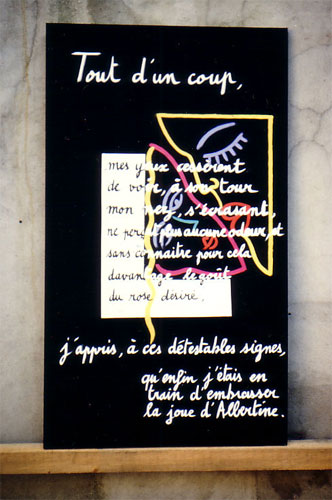 Tout d'un coup,
mes yeux cessèrent
de voir, à son tour
mon nez, s'écrasant,
ne perçut plus aucune odeur, et
sans connaître pour cela
davantage le goût
du rose désiré,
j'appris, à ces détestables signes,
qu'enfin j'étais en
train d'embrasser
la joue d'Albertine.